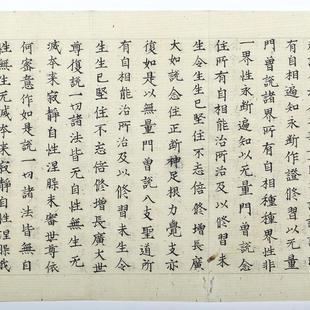 有自相遍知永斷作證修習以无量
門曾說諸界所有自相種種界性非
一界性永斷遍知以无量門曾說念
住所有自相能治所治及以修習未
生令生生已堅住不忘倍修增長廣
大如說念住正斷神足根力覺支亦
復如是以無量門曾說八支聖道所
有自相能治所治及以修習未生令
生生已堅住不忘倍修增長廣大世
尊復說一切諸法皆无自性无生无
滅夲來寂靜自性涅槃未審世尊依
何密意作如是說一切諸法皆無自
性無生无滅夲來寂靜自性涅槃我